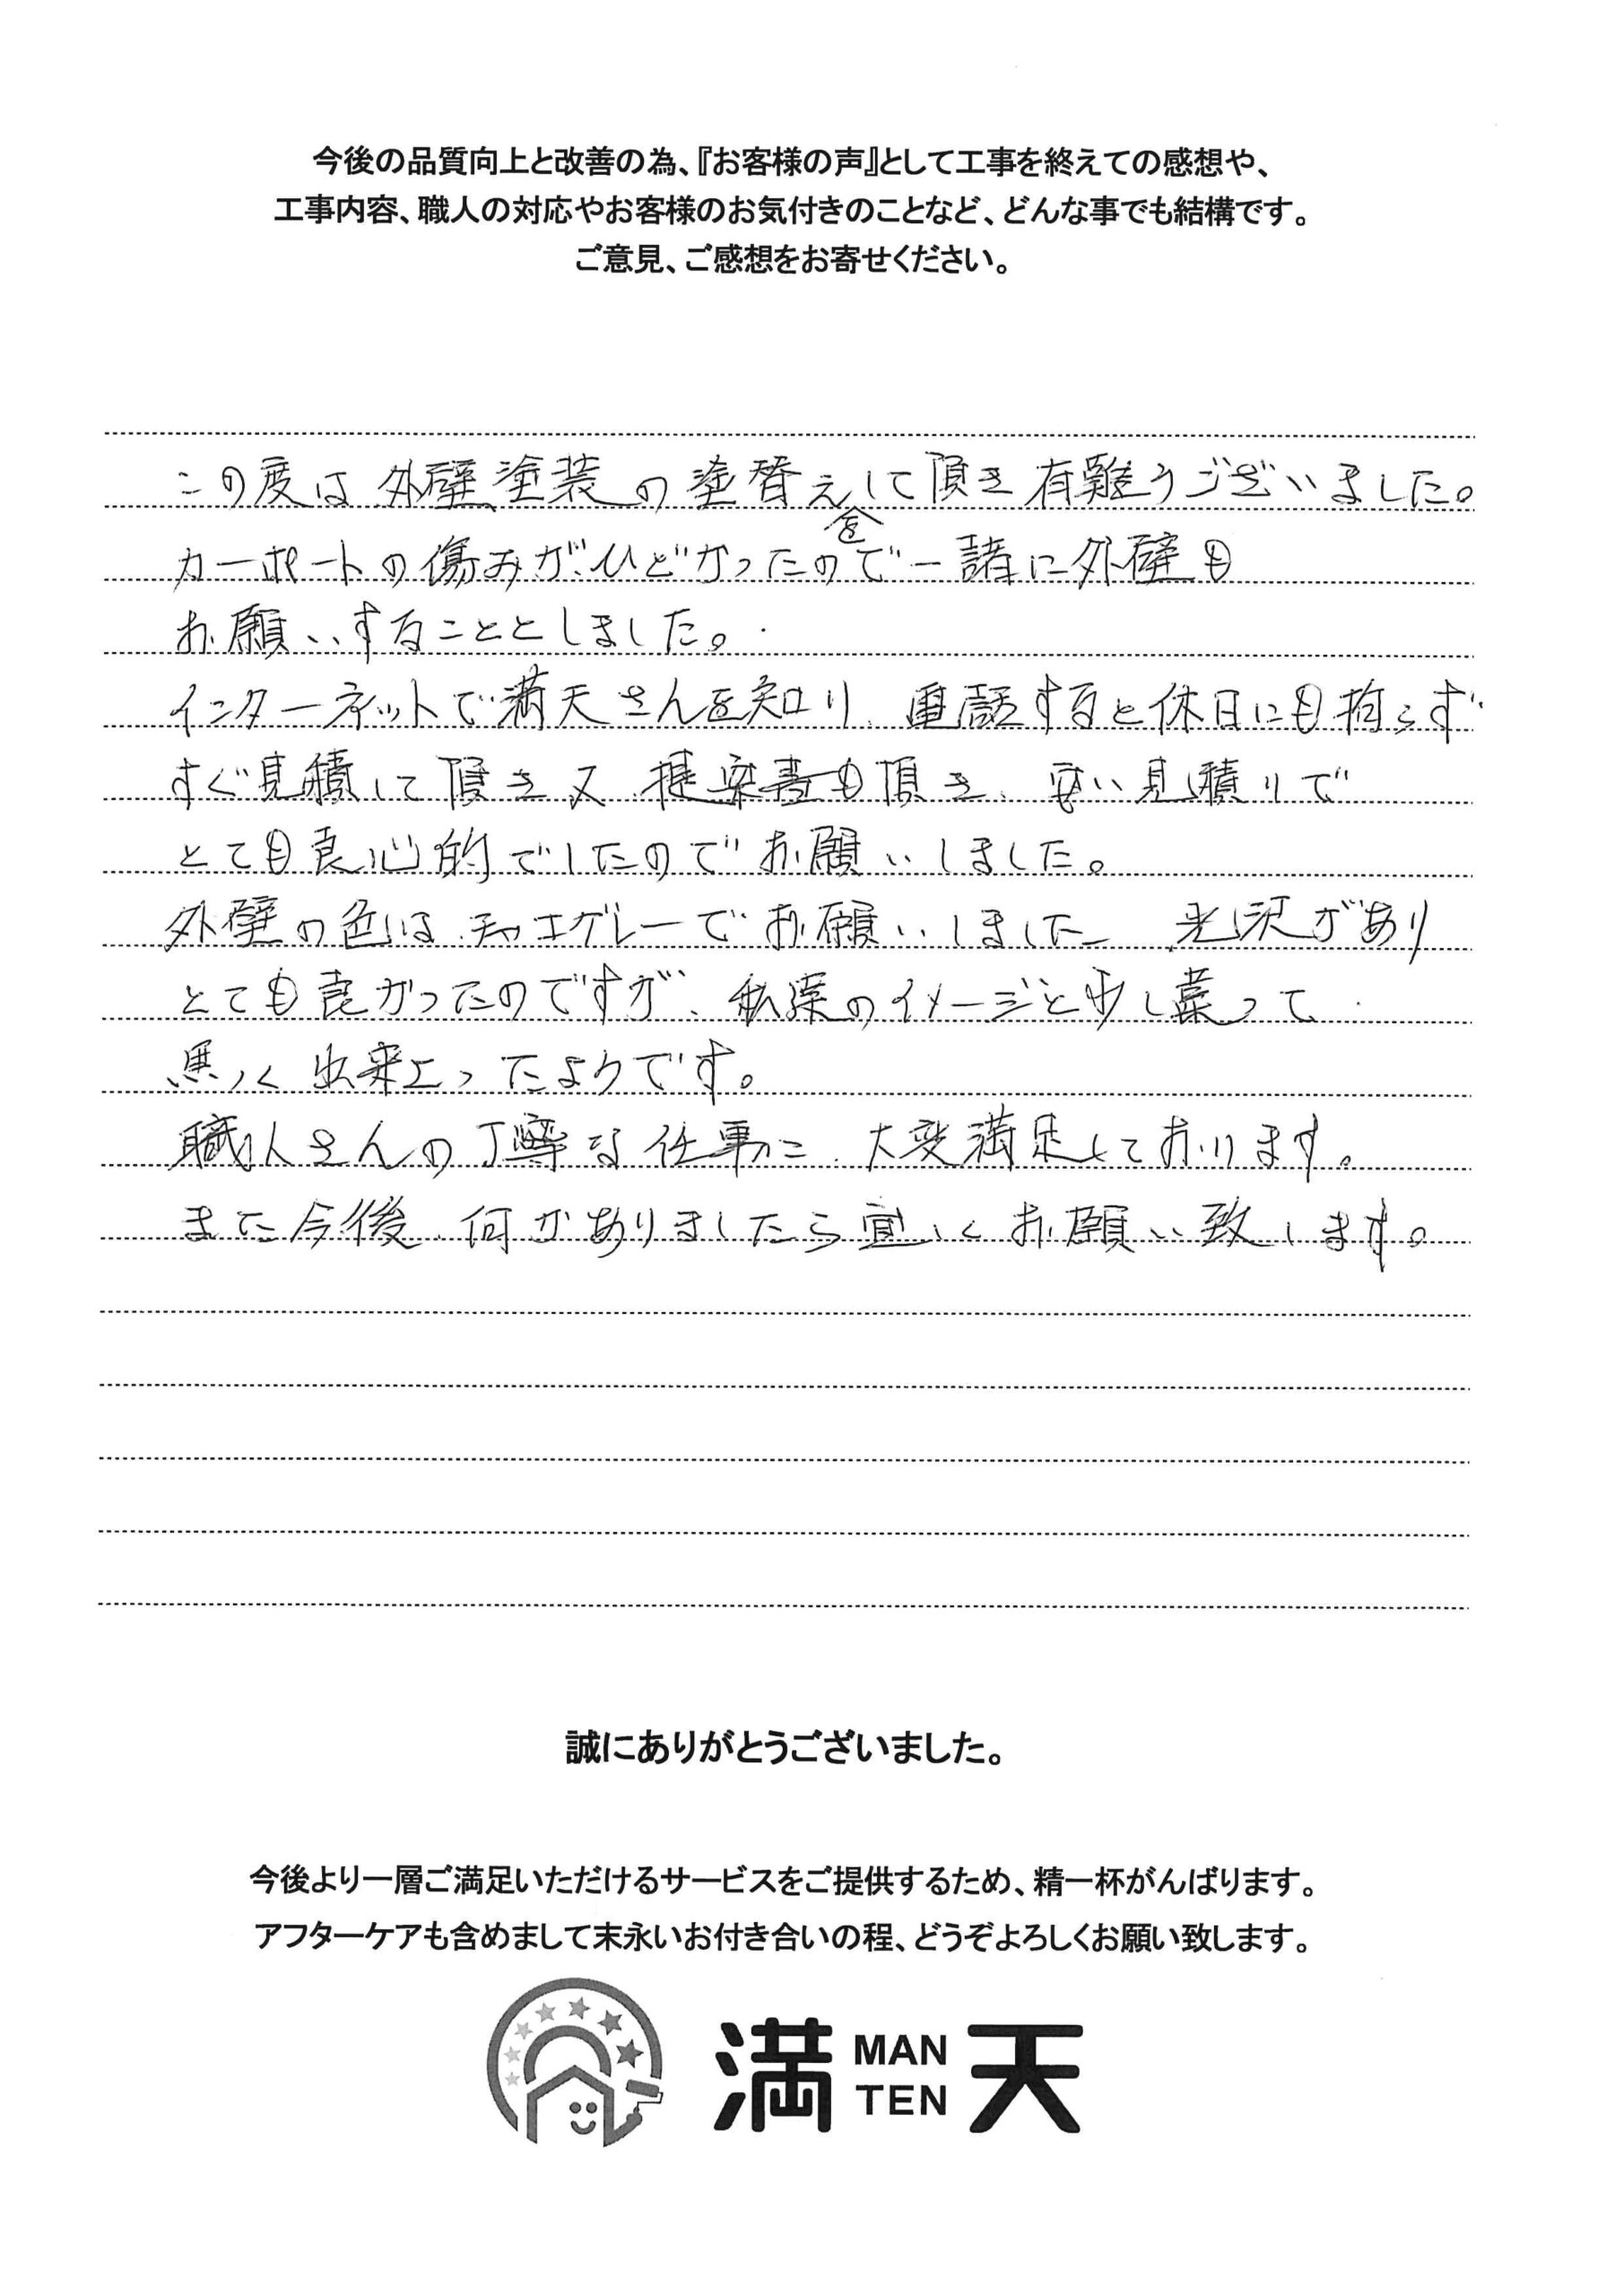 今後の品質向上と改善の為、『お客様の声』として工事を終えての感想や、
工事内容、職人の対応やお客様のお気付きのことなど、どんな事でも結構です。
ご意見、ご感想をお寄せください。
この度は外壁塗装の塗替えをして頂き有難うございました。
カーポートの傷みがひどかったので一諸に外壁も
お願いすることとしました。
インターネットで満天さんを知り、電話すると休日にも拘らず
すぐ見積して頂き又、提案書も頂き、安い見積りで
とても良心的でしたのでお願いしました。
外壁の色は、チャエグレーでお願いしました 光沢があり
とても良かったのですが、私達のイメージと少し違って
黒く出来上ったようです。
職人さんの丁寧な仕事に、大変満足しております。
また今後、何かありましたら宜しくお願い致します。
誠にありがとうございました。
今後より一層ご満足いただけるサービスをご提供するため、精一杯がんばります。
アフターケアも含めまして末永いお付き合いの程、どうぞよろしくお願い致します。
満 MAN TEN 天